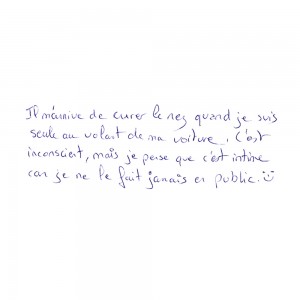 Il m'arrive de curer le nez quand je suis
seule au volant de ma voiture, c'est
inconscient, mais je pense que c'est intime
car je ne le fait jamais en public. :)